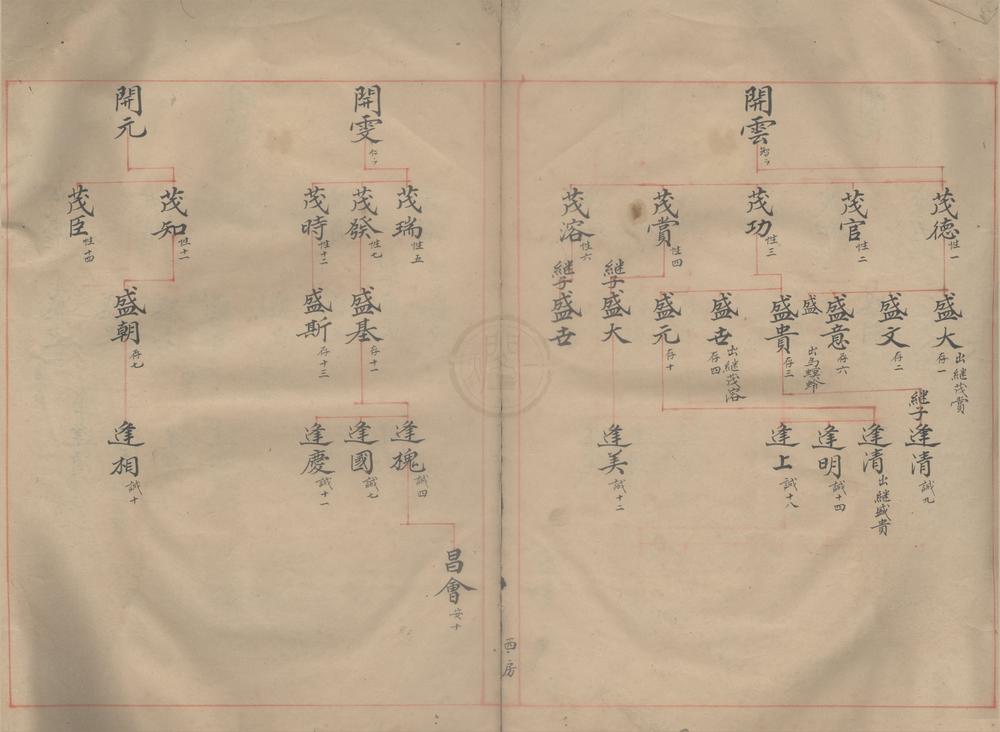 開雲
茂德 性一
茂官 性二
茂功 性三
茂賞 性四
茂溶 性六
盛大 存一 出繼茂賞
盛文 存二
盛意 存六
盛
出為螟蛉
盛貴 存三
盛世 存四 出繼茂溶
盛元 存十
繼子盛大
繼子盛世
繼子逢清 誠九
逢清 出繼盛貴
逢明 誠十四
逢上 誠十八
逢美 誠十二
西房
開雯
茂瑞 性五
茂發 性七
茂時 性十二
盛基 存十一
盛斯 存十三
逢槐 誠四
逢國 誠七
逢慶 誠十一
昌會 安十
開元
茂知 性十一
茂臣 性十四
盛朝 存七
逢相 誠十